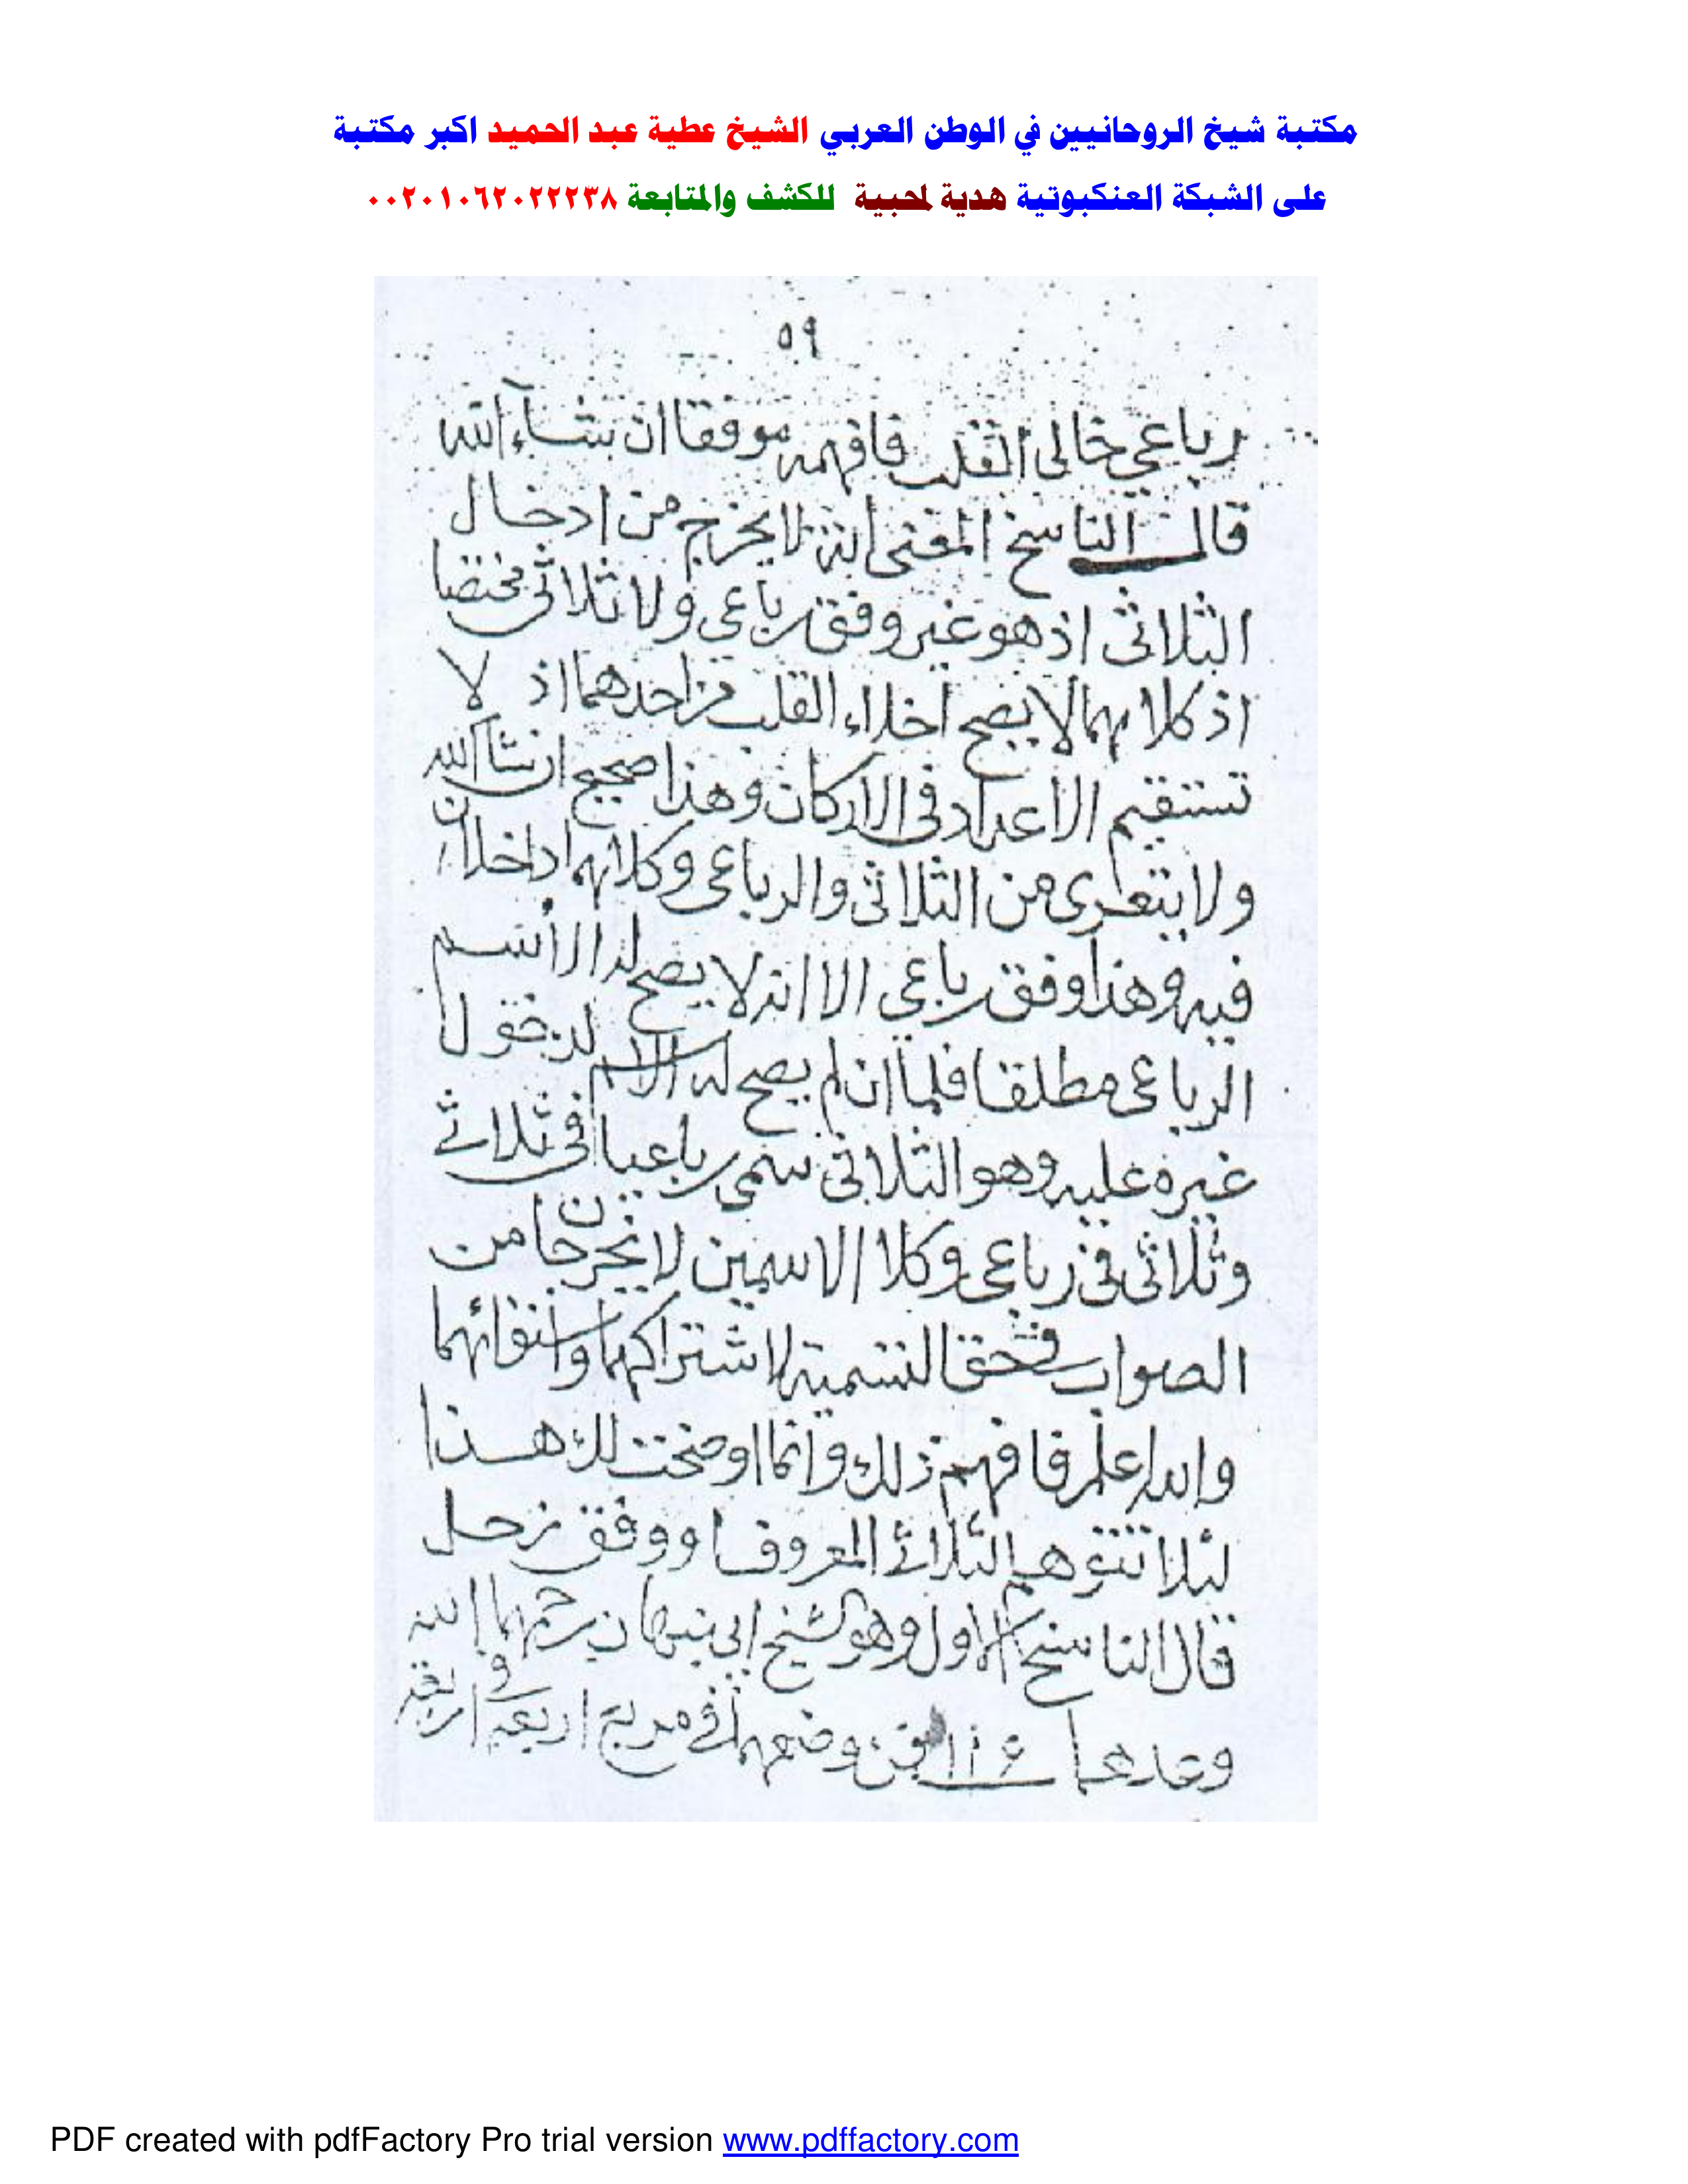 مكتبة شيخ الروحانيين في الوطن العربي الشيخ عطية عبد الحميد اكبر مكتبة
على الشبكة العنكبوتية هدية لمحبية للكشف والمتابعة ٠٠٢٠١٠٦٢٠٢٢٢٣٨
٥٩
رباعي خالى القلب فافهمه موفقا ان شآء الله
قال الناسخ المعنى انه لا يخرج من ادخال
الثلاثى اذ هو غير وفق رباعى ولا ثلاثى مختصا
اذ كلاهما لا يصح اخلاء القلب من احدهما اذ لا
تستقيم الاعداد فى الاركان وهذا صحيح ان شآ الله
ولا يتعرى من الثلاثى والرباعى وكلاهما داخلان
فيه وهذا وفق رباعى الا انه لا يصح له الا اسم
الرباعى مطلقا فلما ان لم يصح له الاسم لدخول
غيره عليه وهو الثلاثى سمى رباعيا فى ثلاثى
وثلاثى فى رباعى وكلا الاسمين لا يخرجان من
الصواب فحق التسمية لاشتراكهما
والله اعلم فافهم ذلك وانما اوضحت لك هذا
لئلا تتوهم الثلاثى المعروف ووفق زحل
قال الناسخ الاول وهو الشيخ ابى نبهان رحمهما الله
وعددهما وضعهما فى مربع اربعة فى اربعة
PDF created with pdfFactory Pro trial version www.pdffactory.com